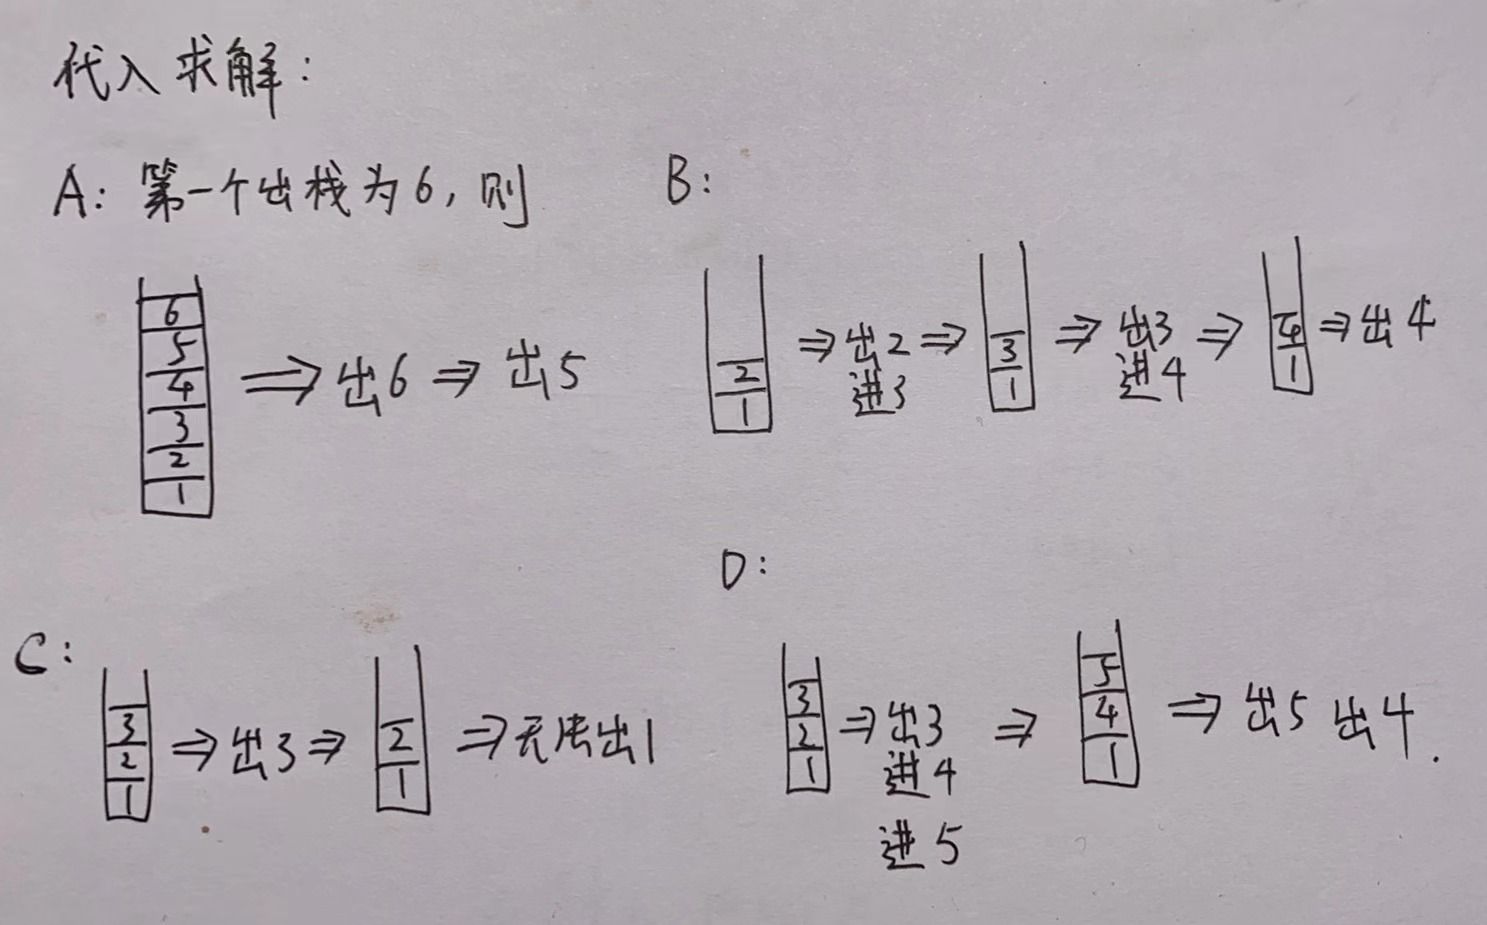 代入求解:
A: 第一个出栈为6, 则
6
5
4
3
2
1
⇒ 出6 ⇒ 出5
B:
2
1
⇒ 出2 ⇒
进3
3
1
⇒ 出3 ⇒
进4
4
1
⇒ 出4
C:
3
2
1
⇒ 出3 ⇒
2
1
⇒ 无法出1
D:
3
2
1
⇒ 出3 ⇒
进4
进5
5
4
1
⇒ 出5 出4.